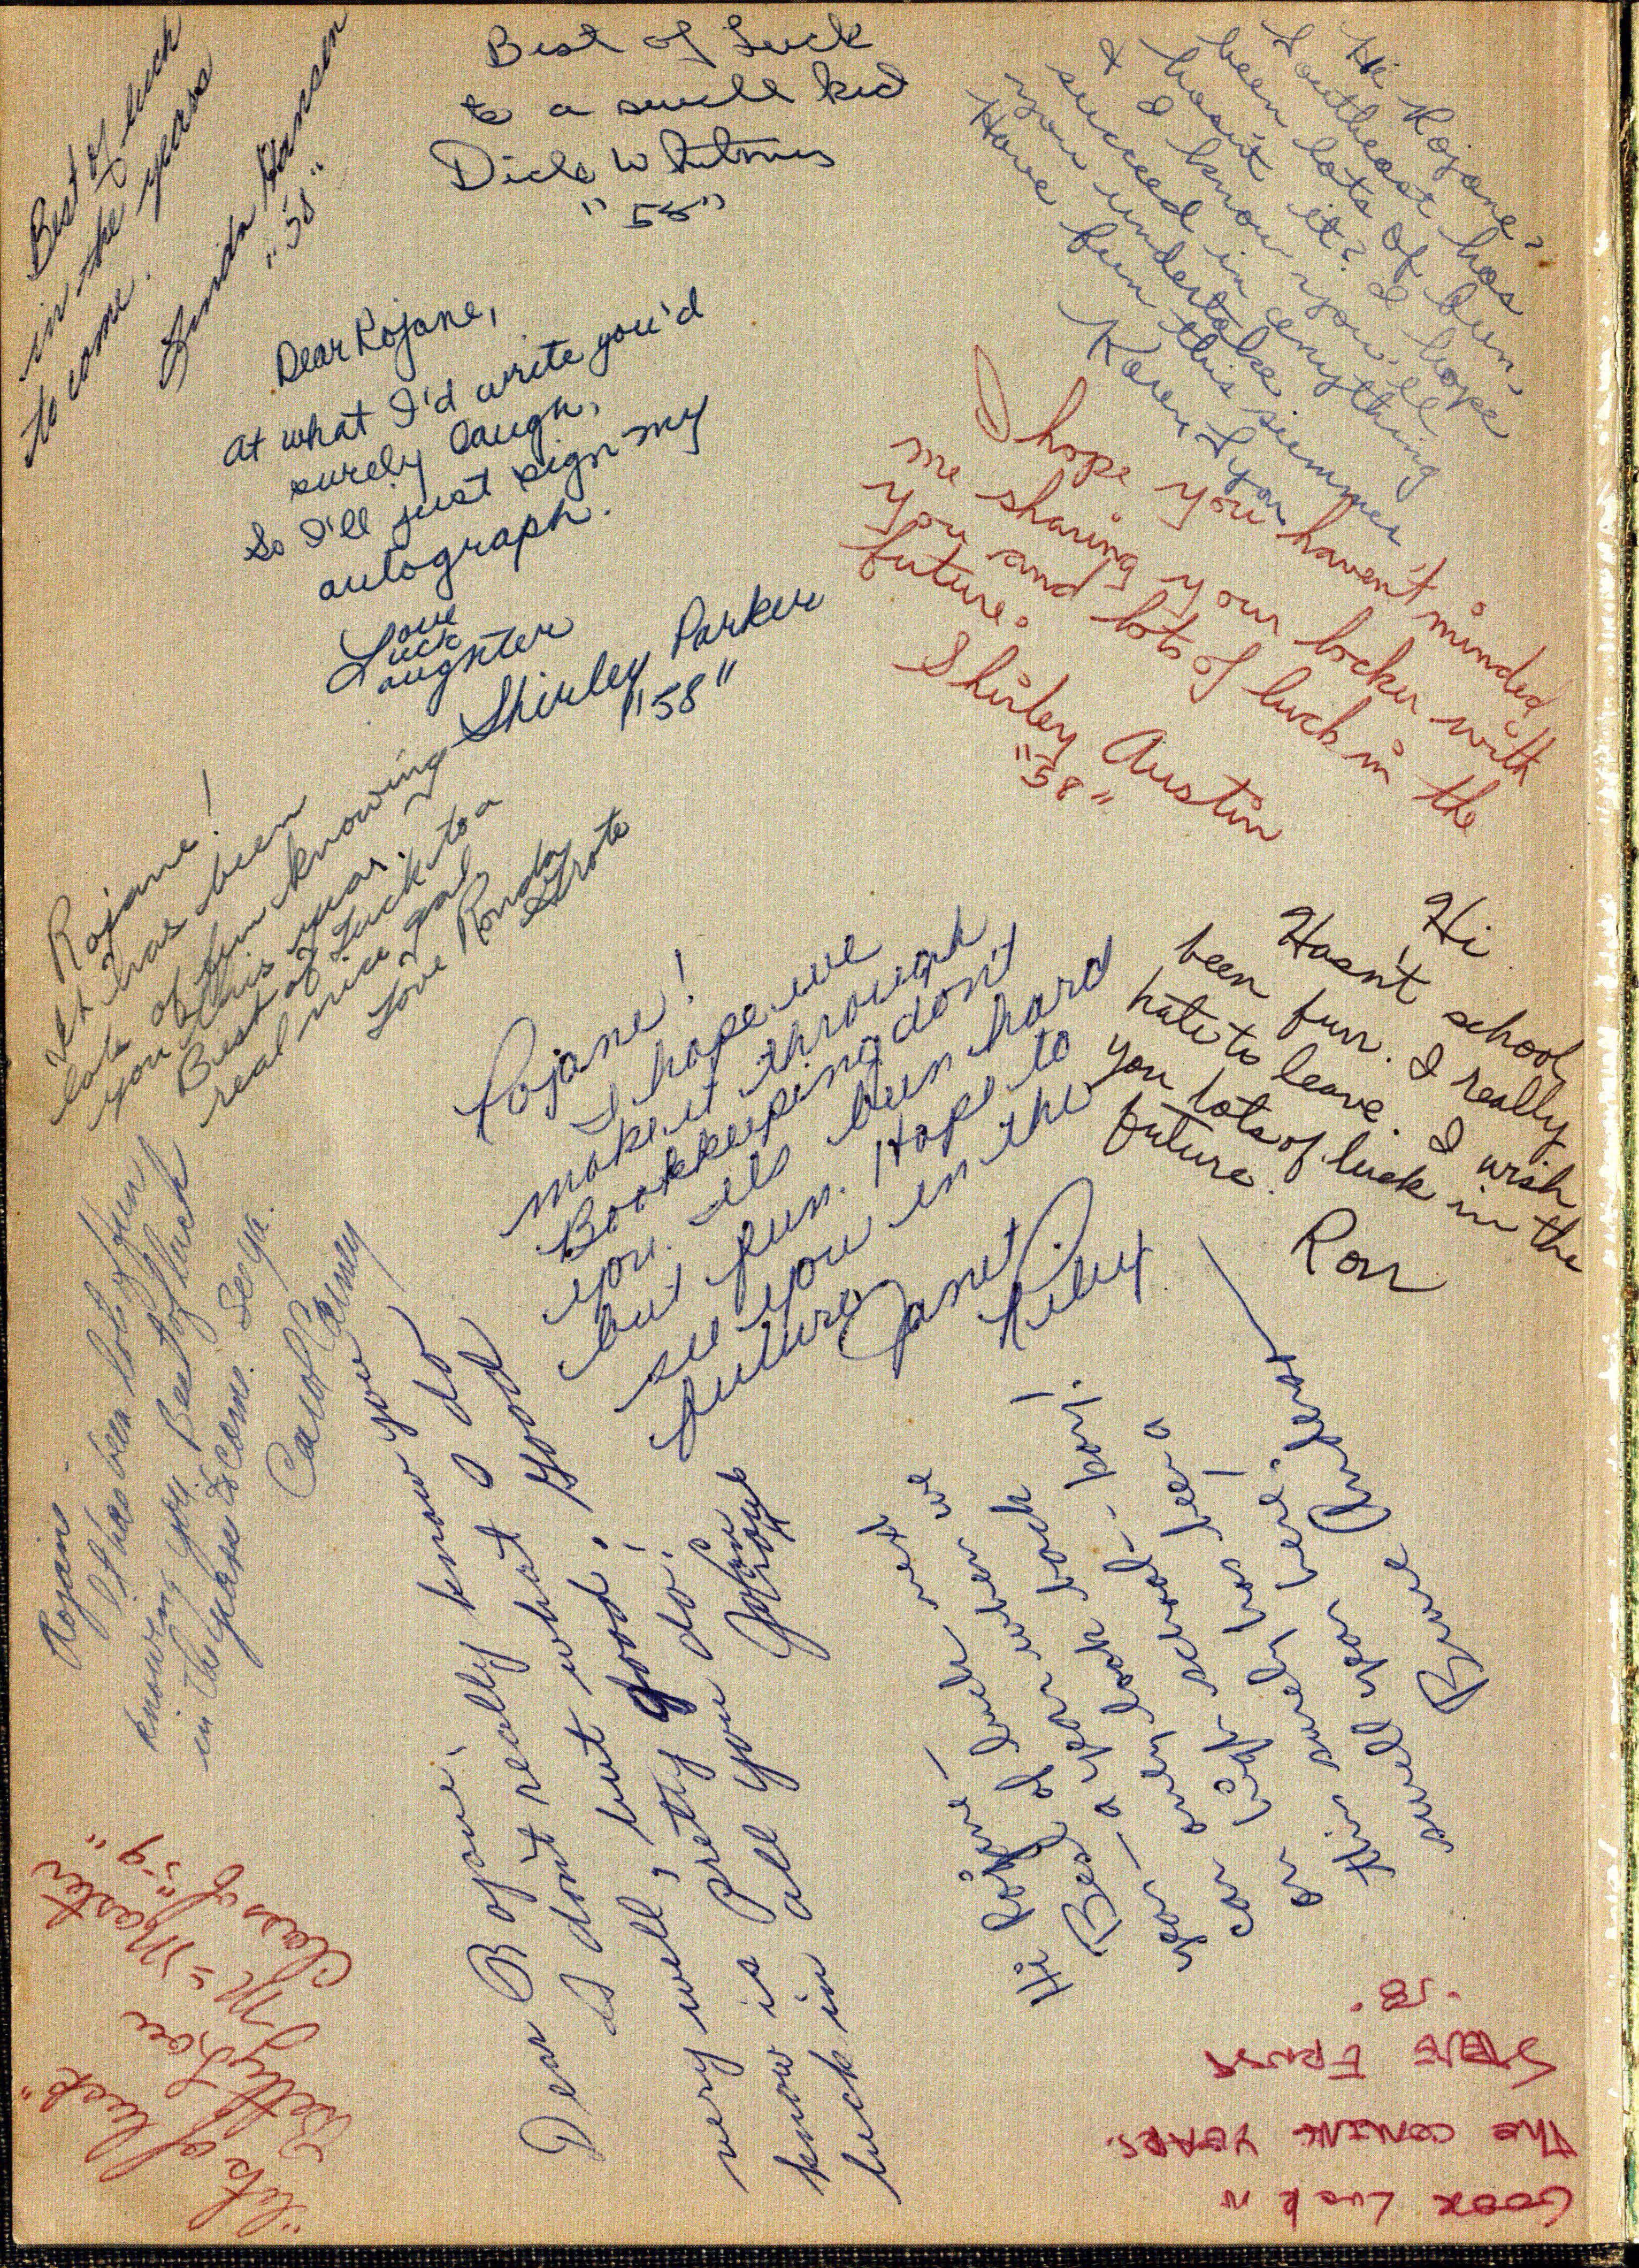 Best of luck
in the years
to come.
Linda Hansen
"58"
Best of Luck
to a swell kid
Dick
"55"
Hi Rojane,
Southeast has
been lots of fun,
hasn't it? I hope
& I know you'll
succeed in anything
you undertake
Have fun this summer,
Karen Lyon
Dear Rojane,
At what I'd write you'd
surely laugh,
So I'll just sign my
autograph.
Love
Luck
Laughter
Shirley Parker
"58"
I hope you haven't minded
me sharing your locker with
you and lots of luck in the
future.
Shirley Austin
"58"
Rojane!
It has been
lots of fun knowing
you this year.
Best of Luck to a
real nice gal
Love Ronda
Strote
Rojane!
I hope we
make it through
Bookkeeping don't
you. It's been hard
but fun. Hope to
see you in the
future
Janet
Riley
Hi
Hasn't school
been fun. I really
hate to leave. I wish
you lots of luck in the
future.
Ron
Rojane
It has been lots of fun
knowing you. Best of luck
in the years to come. See ya.
Carol
Dear Rojane,
I really know you do
I don't really know I do
but what good
very well, but good!
know is Pretty
luck in all you do.
John
Hi Rojane—
Best of luck next
year— a year when we
can only look back!
on high school— — Kay!
this surely has been a
swell year here,
Bruce
"Lots of luck"
Betty Lou
Class of "59"
GOOD LUCK IN
THE COMING YEARS.
STEVE
'58'